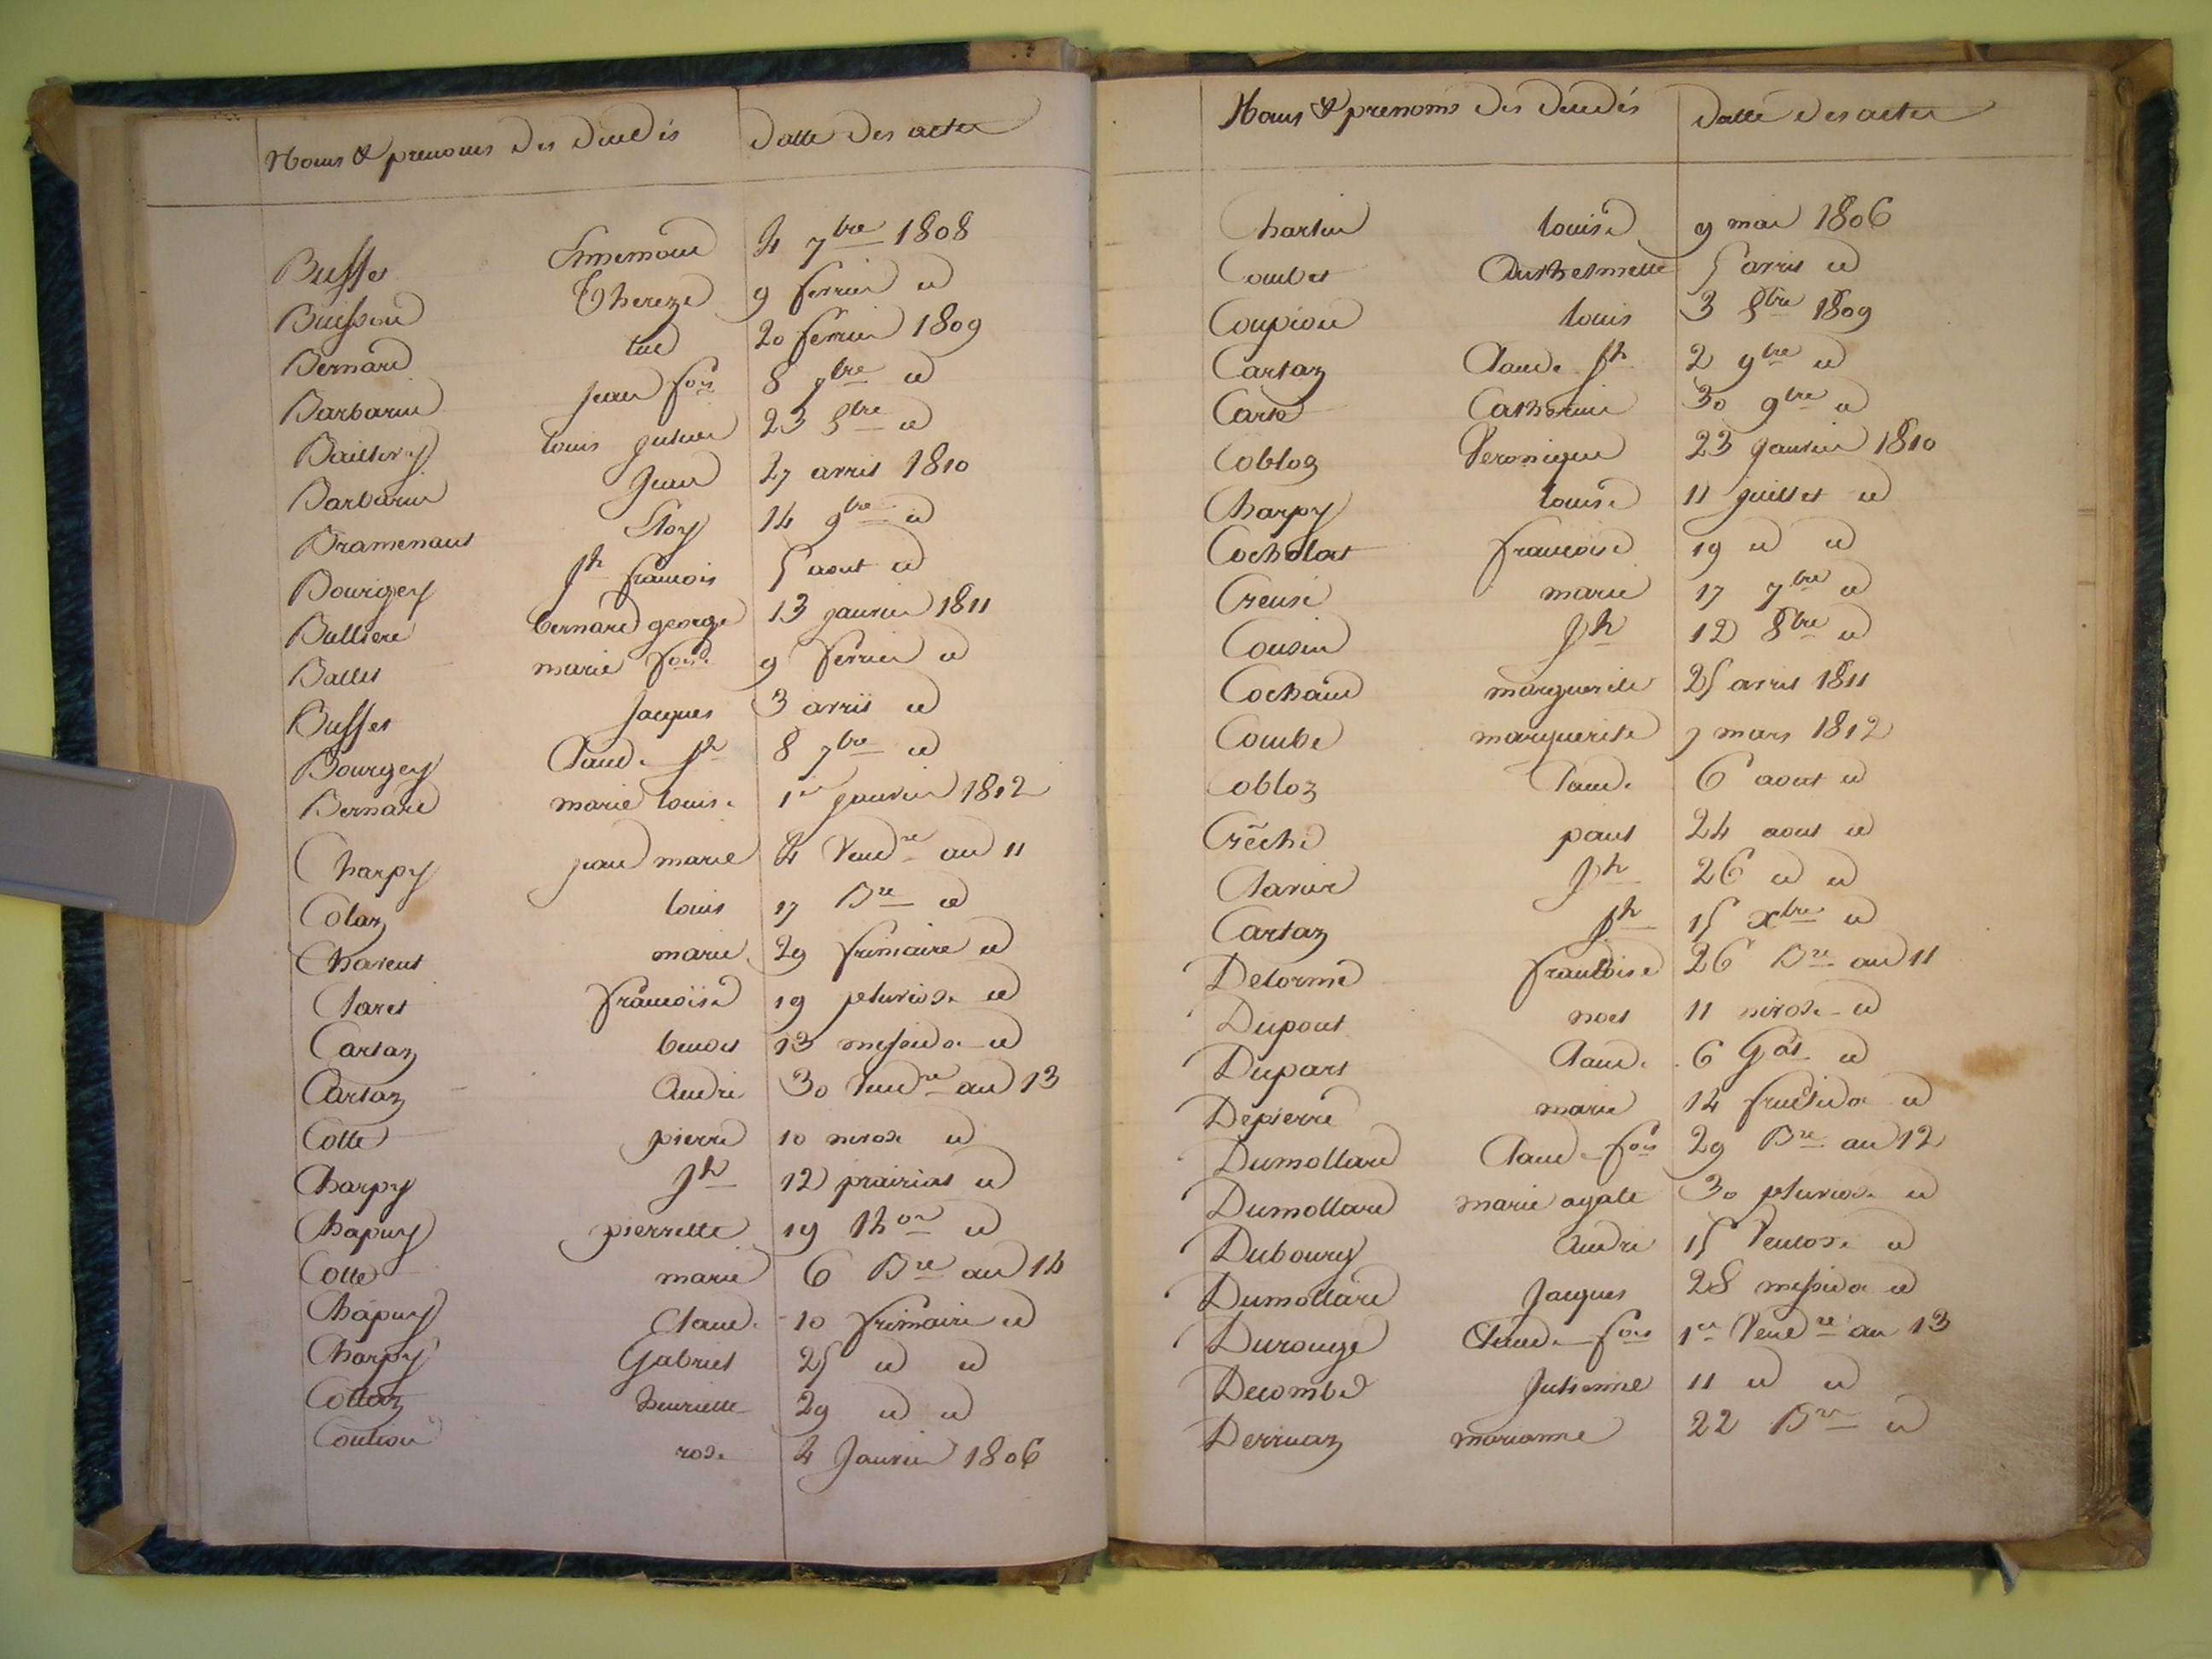 Noms & prenoms des decedés Datte des actes
Buffet Ennemond 4 7bre 1808
Buisson Thereze 9 fevrier id
Bernard luc 20 fevrier 1809
Barbarin jean fois 8 7bre id
Baillevy louis julien 23 8bre id
Barbarin Jean 27 avril 1810
Bramenaut Eloy 14 9bre id
Bourgey jh francois 5 aout id
Bulliere bernard george 13 janvier 1811
Ballet marie foise 9 fevrier id
Buffet Jacques 3 avril id
Bourgey Claude jh 8 7bre id
Bernard marie louise 1er janvier 1812
Charpy jean marie 4 Vendre an 11
Colaz louis 17 Bre id
Chavent marie 29 frimaire id
Claret francoise 19 pluviose id
Cartaz benoit 13 messidor id
Cartaz André 30 Vendre an 13
Collé pierre 10 nivose id
Charpy jh 12 prairial id
Chapuy pierrette 19 thor id
Collé marie 6 Bre an 14
Chapuy Claude 10 frimaire id
Charpy Gabriel 25 id id
Collaz henriette 29 id id
Coulion rose 4 Janvier 1806
Noms & prenoms des decedés Datte des actes
Charlin louise 9 mai 1806
Combet 5 avril id
Coupiou louis 3 8bre 1809
Cartaz Claude jh 2 9bre id
Carle Catherine 30 9bre id
Cobloz Veronique 23 janvier 1810
Charpy louise 11 juillet id
Cochelat francoise 19 id id
Creusé marie 17 7bre id
Cousin jh 12 8bre id
Cochaud marguerite 25 avril 1811
Combe marguerite 7 mars 1812
Cobloz Claude 6 aout id
Créche paul 24 aout id
Clavier jh 26 id id
Cartaz jh 15 xbre id
Delorme francoise 26 Bre an 11
Dupont noel 11 nivose id
Dupart Claude 6 Gal id
Depierre marie 14 fructidor id
Dumollard Claude fois 29 Bre an 12
Dumollard marie agate 30 pluviose id
Dubourg André 15 Ventose id
Dumollard Jacques 28 messidor id
Durouge Claude fois 1er Vendre an 13
Decombe Julienne 11 id id
Derruaz marianne 22 Bre id